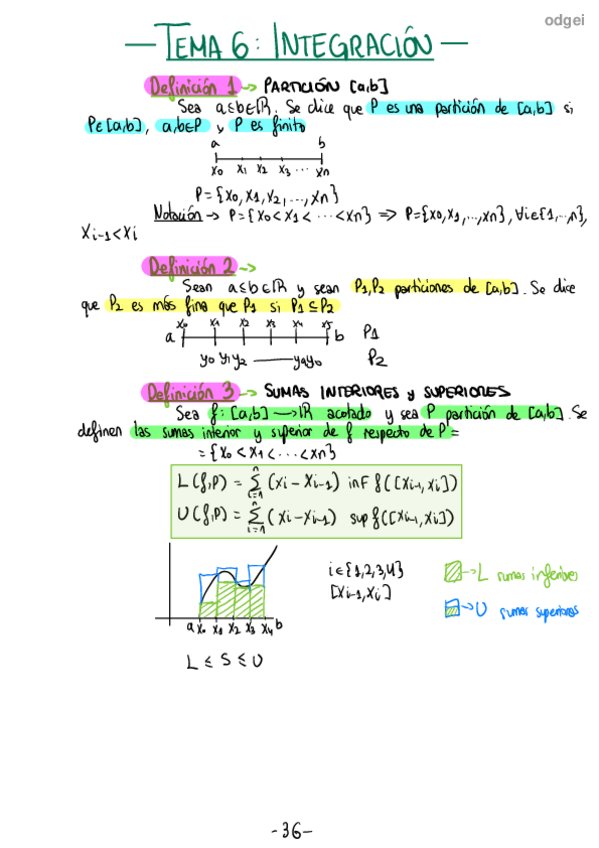 odgei
— TEMA 6: INTEGRACIÓN —
Definición 1 -> PARTICIÓN [a,b]
Sea a≤b∈ℝ. Se dice que P es una partición de [a,b] si
P∈[a,b], a,b∈P y P es finito
a b
x0 x1 x2 x3 ... xn
P={x0,x1,x2,...,xn}
Notación → P={x0<x1< ... <xn} => P={x0,x1,...,xn}, ∀i∈{1,...,n},
xi-1<xi
Definición 2 ->
Sean a≤b∈ℝ y sean P1,P2 particiones de [a,b]. Se dice
que P2 es más fina que P1 si P1⊆P2
x0 x1 x2 x3 x4 x5
a b P1
y0 y1 y2 P2
Definición 3 -> SUMAS INTERIORES y SUPERIORES
Sea f:[a,b] → ℝ acotado y sea P partición de [a,b]. Se
definen las sumas inferior y superior de f respecto de P =
= {x0<x1< ... <xn}
L(f,P) = ∑ i=1 n (xi - xi-1) inf f([xi-1,xi])
U(f,P) = ∑ i=1 n (xi-xi-1) sup f([xi-1,xi])
i∈{1,2,3,4}
[xi-1,xi]
-> L sumas inferiores
-> U sumas superiores
a x0 x1 x2 x3 x4 b
L ≤ S ≤ U
-36-